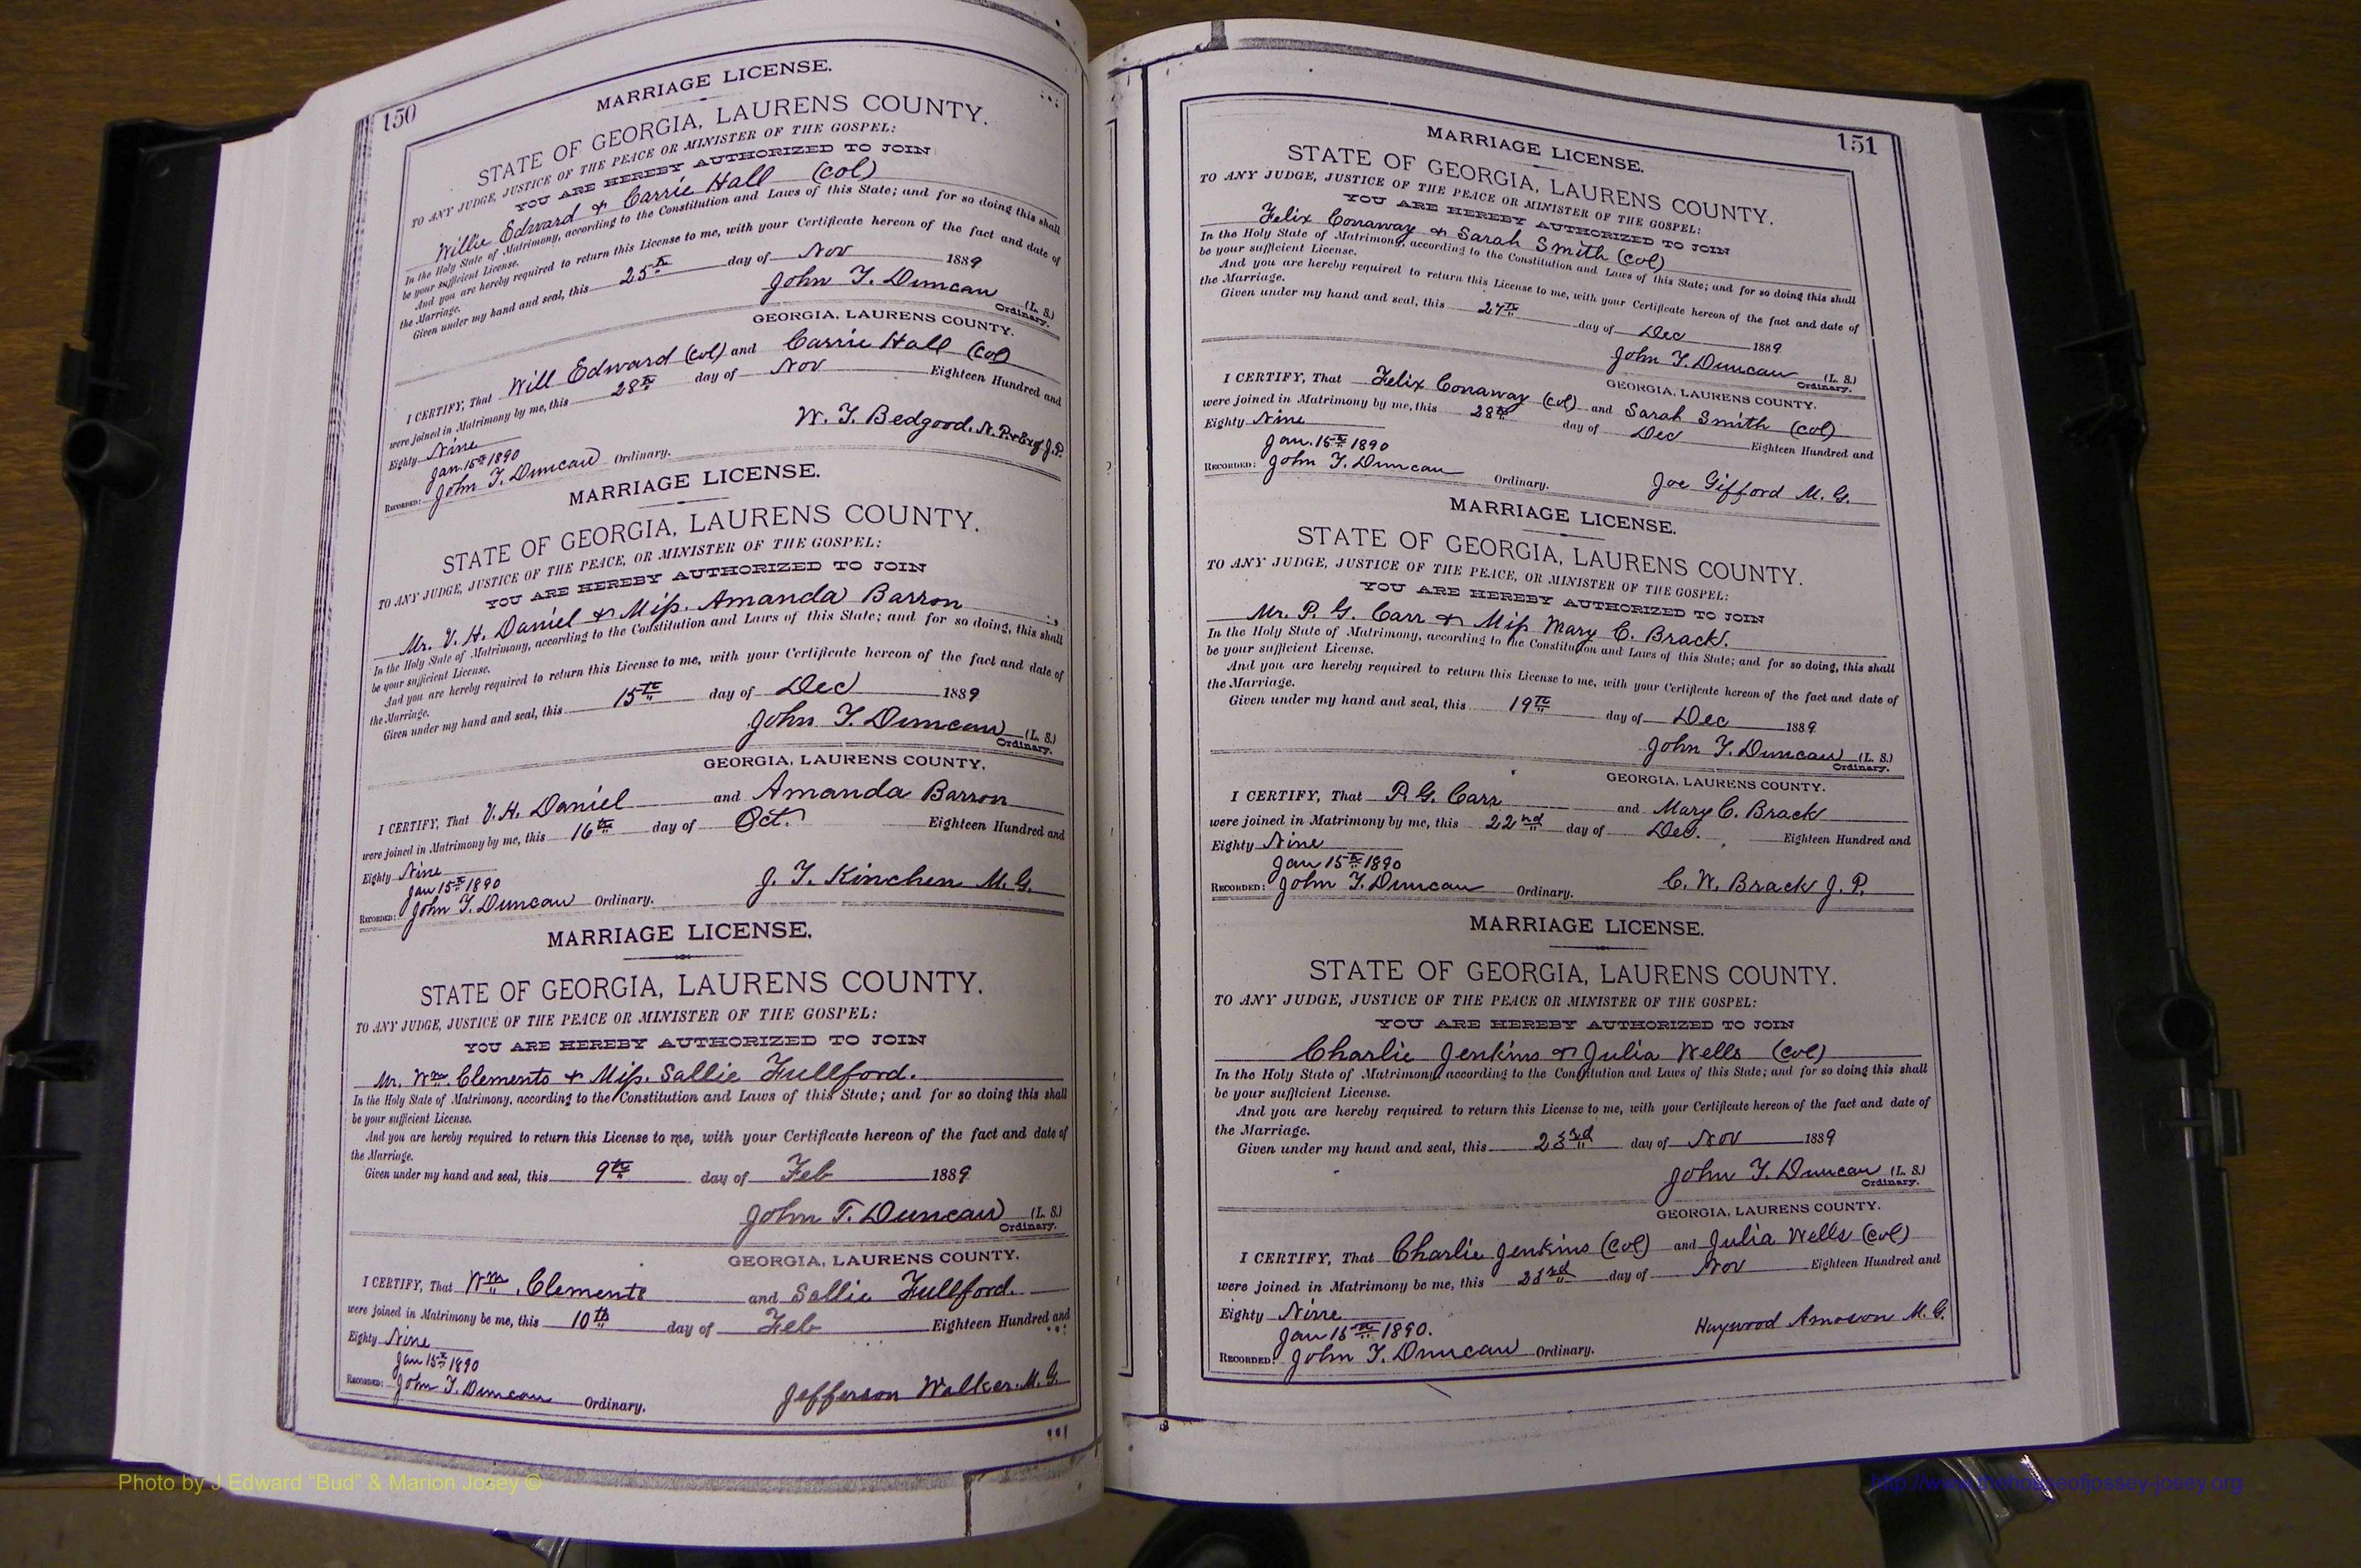 150
MARRIAGE LICENSE.
STATE OF GEORGIA, LAURENS COUNTY.
TO ANY JUDGE, JUSTICE OF THE PEACE OR MINISTER OF THE GOSPEL:
YOU ARE HEREBY AUTHORIZED TO JOIN
Willie Edward & Carrie Hall (Col)
In the Holy State of Matrimony, according to the Constitution and Laws of this State; and for so doing this shall
be your sufficient License.
And you are hereby required to return this License to me, with your Certificate hereon of the fact and date of
the Marriage.
Given under my hand and seal, this 25th day of Nov 1889
John T. Duncan (L. S.)
Ordinary.
GEORGIA, LAURENS COUNTY.
I CERTIFY, That Will Edward (Col) and Carrie Hall (Col)
were joined in Matrimony by me, this 28th day of Nov Eighteen Hundred and
Eighty Nine
W. T. Bedgood. N. P. & Exof J.P.
Jan. 15th 1890
Recorded: John T. Duncan Ordinary.
MARRIAGE LICENSE.
STATE OF GEORGIA, LAURENS COUNTY.
TO ANY JUDGE, JUSTICE OF THE PEACE, OR MINISTER OF THE GOSPEL:
YOU ARE HEREBY AUTHORIZED TO JOIN
Mr. V. H. Daniel & Miss. Amanda Barron
In the Holy State of Matrimony, according to the Constitution and Laws of this State; and for so doing, this shall
be your sufficient License.
And you are hereby required to return this License to me, with your Certificate hereon of the fact and date of
the Marriage.
Given under my hand and seal, this 15th day of Dec 1889
John T. Duncan (L. S.)
Ordinary.
GEORGIA, LAURENS COUNTY.
I CERTIFY, That V. H. Daniel and Amanda Barron
were joined in Matrimony by me, this 16th day of Oct. Eighteen Hundred and
Eighty Nine
Jan 15th 1890
J. T. Kinchen M. G.
Recorded: John T. Duncan Ordinary.
MARRIAGE LICENSE.
STATE OF GEORGIA, LAURENS COUNTY.
TO ANY JUDGE, JUSTICE OF THE PEACE OR MINISTER OF THE GOSPEL:
YOU ARE HEREBY AUTHORIZED TO JOIN
Mr. Wm. Clements & Miss. Sallie Fullford.
In the Holy State of Matrimony, according to the Constitution and Laws of this State; and for so doing this shall
be your sufficient License.
And you are hereby required to return this License to me, with your Certificate hereon of the fact and date of
the Marriage.
Given under my hand and seal, this 9th day of Feb 1889
John T. Duncan (L. S.)
Ordinary.
GEORGIA, LAURENS COUNTY.
I CERTIFY, That Wm. Clements and Sallie Fullford.
were joined in Matrimony be me, this 10th day of Feb Eighteen Hundred and
Eighty Nine
Jan 15th 1890
Recorded: John T. Duncan Ordinary.
Jefferson Walker. M. G.
151
MARRIAGE LICENSE.
STATE OF GEORGIA, LAURENS COUNTY.
TO ANY JUDGE, JUSTICE OF THE PEACE OR MINISTER OF THE GOSPEL:
YOU ARE HEREBY AUTHORIZED TO JOIN
Felix Conaway & Sarah Smith (Col)
In the Holy State of Matrimony, according to the Constitution and Laws of this State; and for so doing this shall
be your sufficient License.
And you are hereby required to return this License to me, with your Certificate hereon of the fact and date of
the Marriage.
Given under my hand and seal, this 27th day of Dec 1889
John T. Duncan (L. S.)
Ordinary.
GEORGIA, LAURENS COUNTY.
I CERTIFY, That Felix Conaway (Col) and Sarah Smith (Col)
were joined in Matrimony by me, this 28th day of Dec Eighteen Hundred and
Eighty Nine
Jan. 15th 1890
Recorded: John T. Duncan Ordinary.
Joe Gifford M. G.
MARRIAGE LICENSE.
STATE OF GEORGIA, LAURENS COUNTY.
TO ANY JUDGE, JUSTICE OF THE PEACE, OR MINISTER OF THE GOSPEL:
YOU ARE HEREBY AUTHORIZED TO JOIN
Mr. P. G. Carr & Miss Mary C. Brack.
In the Holy State of Matrimony, according to the Constitution and Laws of this State; and for so doing, this shall
be your sufficient License.
And you are hereby required to return this License to me, with your Certificate hereon of the fact and date of
the Marriage.
Given under my hand and seal, this 19th day of Dec 1889
John T. Duncan (L. S.)
Ordinary.
GEORGIA, LAURENS COUNTY.
I CERTIFY, That P. G. Carr and Mary C. Brack
were joined in Matrimony by me, this 22nd day of Dec. Eighteen Hundred and
Eighty Nine
Jan 15th 1890
Recorded: John T. Duncan Ordinary.
C. W. Brack J. P.
MARRIAGE LICENSE.
STATE OF GEORGIA, LAURENS COUNTY.
TO ANY JUDGE, JUSTICE OF THE PEACE OR MINISTER OF THE GOSPEL:
YOU ARE HEREBY AUTHORIZED TO JOIN
Charlie Jenkins & Julia Wells (Col)
In the Holy State of Matrimony, according to the Constitution and Laws of this State; and for so doing this shall
be your sufficient License.
And you are hereby required to return this License to me, with your Certificate hereon of the fact and date of
the Marriage.
Given under my hand and seal, this 23rd day of Nov 1889
John T. Duncan (L. S.)
Ordinary.
GEORGIA, LAURENS COUNTY.
I CERTIFY, That Charlie Jenkins (Col) and Julia Wells (Col)
were joined in Matrimony be me, this 23rd day of Nov Eighteen Hundred and
Eighty Nine
Jan 15th 1890.
Haywood M. G.
Recorded: John T. Duncan Ordinary.
Photo by J Edward "Bud" & Marion Josey ©
http://www.thehouseofjossey-josey.org